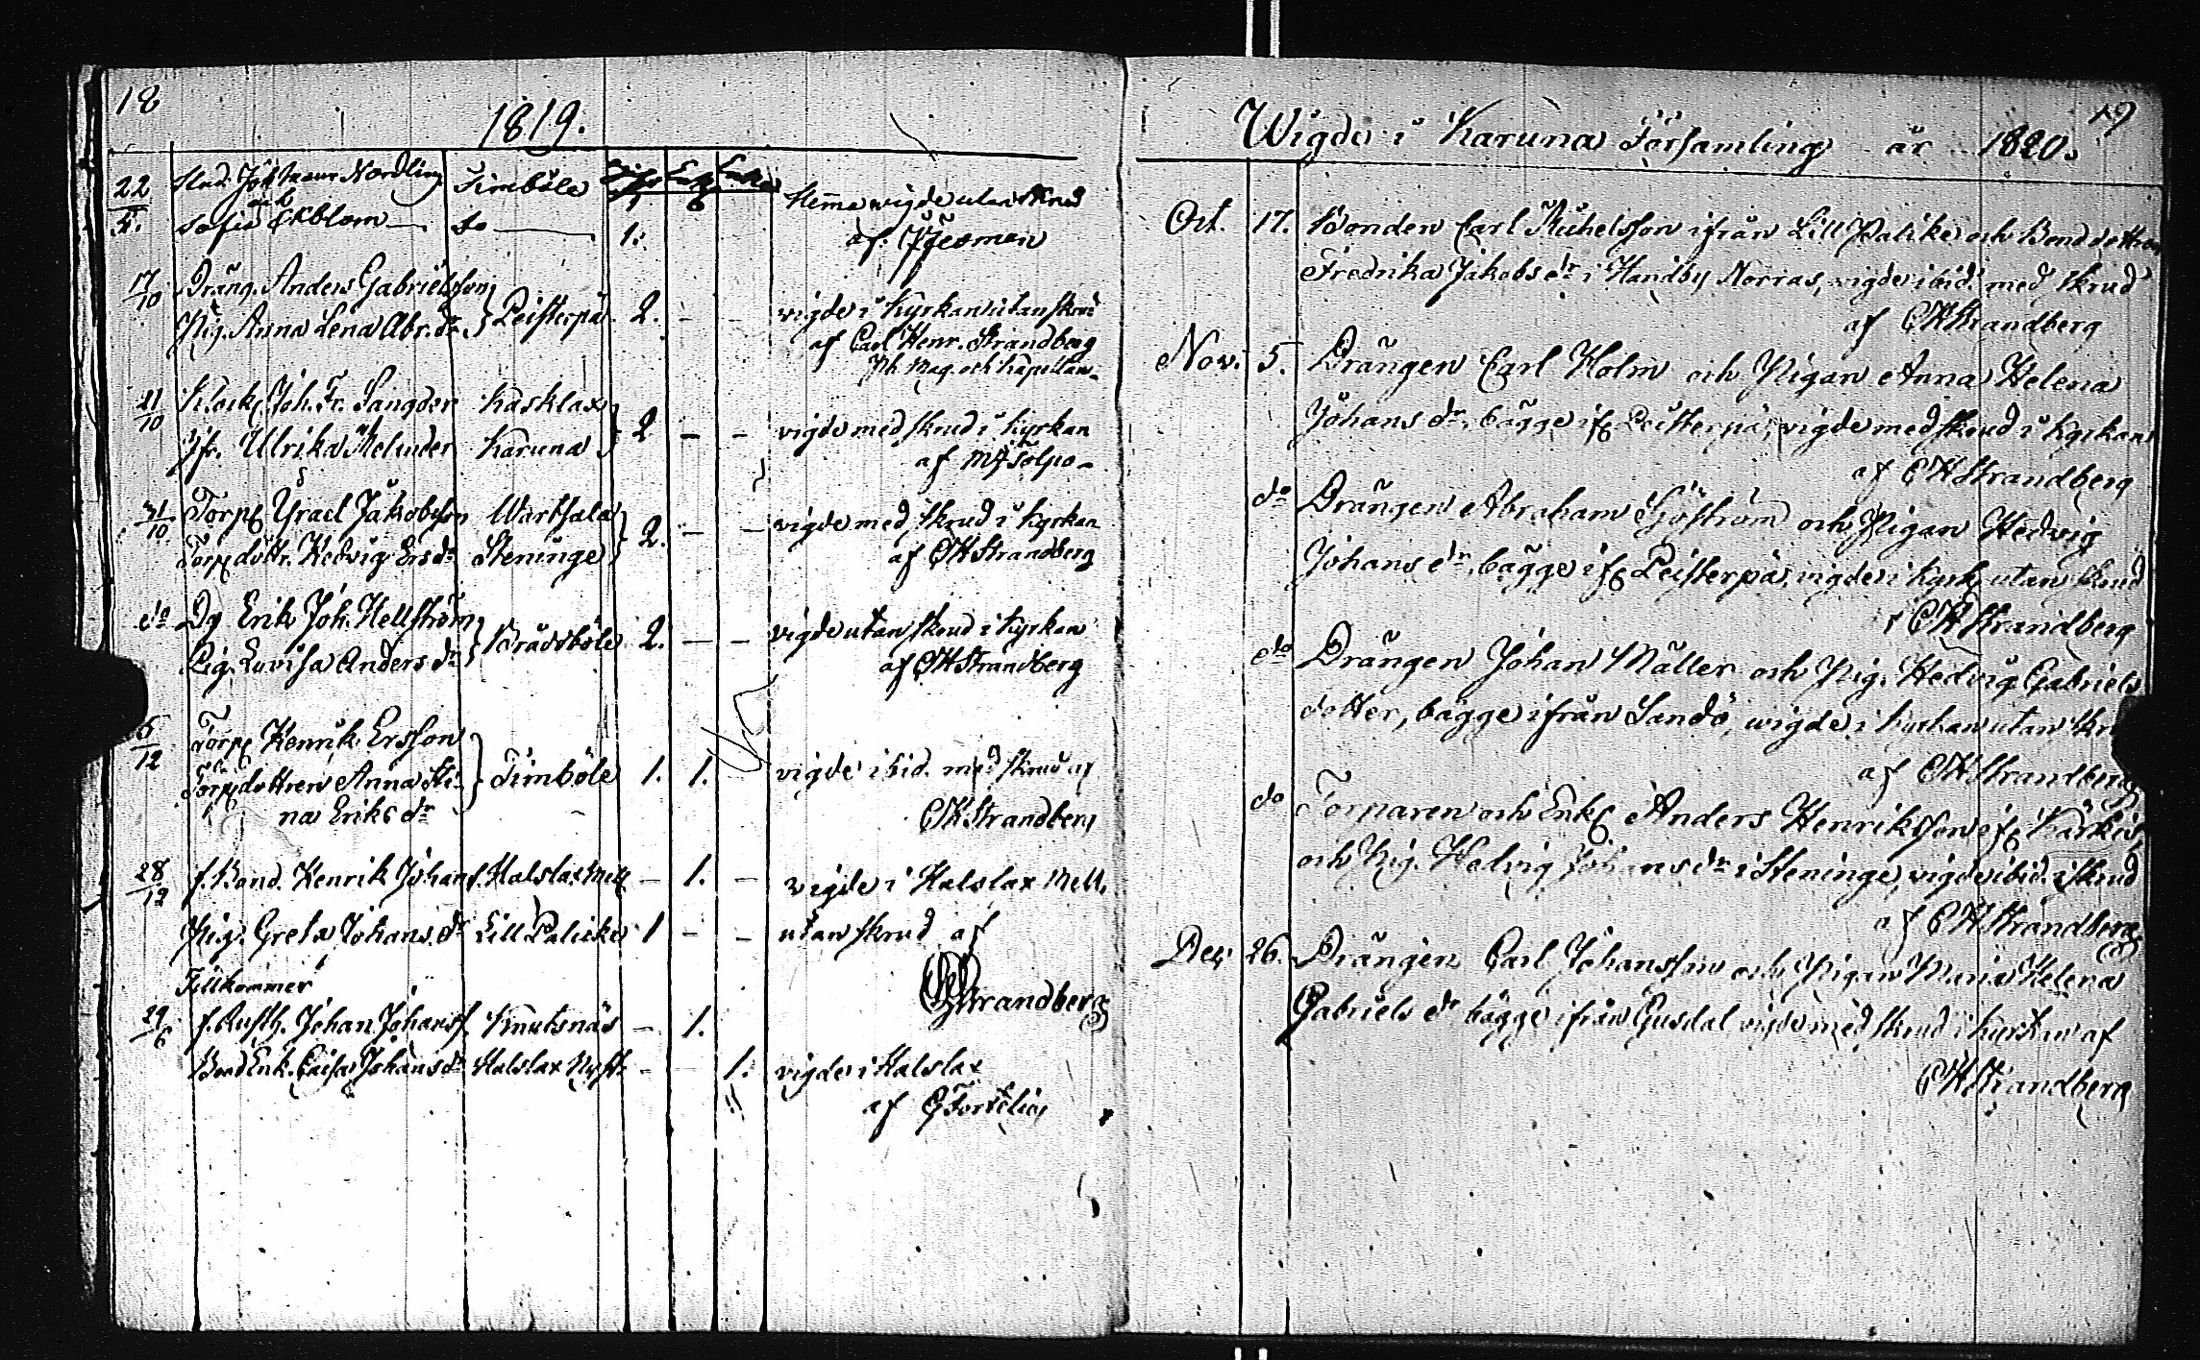 18
1819.
22/4. Stud. Johan Nordling Timböle
och
Sofia Ekblom do 1.
Hemma wigde utan skrud
af
17/10 Dräng. Anders Gabrielsson
Pig. Anna Lena Abr. dr Peisterpä 2. - -
vigde i Kyrkan utan skrud
af Carl Henr. Strandberg
Ph. Mag. och Kapellan
21/10 Klock. Joh. Fr. Sangder Kasklax
Jfr. Ulrika Melinder Karuna 2 - -
vigde med skrud i Kyrkan
af
31/10 Torp. Israel Jakobsson Wartsala
Torp.dottr. Hedvig Ersdr Steninge 2. - -
vigde med skrud i Kyrkan
af CHStrandberg
do Dg Erik Joh. Hellström
Pig. Lovisa Anders dr Bråddböle 2. - -
vigde utan skrud i Kyrkan
af CHStrandberg
5/12 Torp. Henrik Ersson
Torp.dottren Anna Sti-
na Eriks dr Timböle 1. 1.
vigde ibid. med skrud af
CHStrandberg
28/12 f. Bond. Henrik Johans. Halslax Mell. - 1. -
vigde i Halslax Mell.
Pig. Greta Johans dr Lill Palicke 1 - -
utan skrud af
CHStrandberg
Tillkommer
29/6 f. Rusth. Johan Johanss. Knutsnäs - 1.
Bond Enk. Caisa Johans dr Halslax - - 1.
vigde i Halslax
af
19
Wigde i Karuna Församling år 1820.
Oct. 17. Bonden Carl Michelsson ifrån Lill Palike och Bonddottren
Fredrika Jakobs dr i Handby Norras, vigde ibid. med skrud
af CHStrandberg
Nov. 5. Drängen Carl Holm och Pigan Anna Helena
Johans dr, bägge ifr. Peisterpä, vigde med skrud i Kyrkan
af CHStrandberg
do Drängen Abraham Sjöström och Pigan Hedvig
Johans dr, bägge ifr. Peisterpä, vigde i Kyrk. utan skrud
CHStrandberg
do Drängen Johan Mäller och Pig. Hedvig Gabriels
dotter, bägge ifrån Sandö, wigde i kyrkan utan skr
af CHStrandberg
do Torparen och Enkl. Anders Henriksson ifr. Kärkis,
och Pig. Hedvig Johans dr i Steninge, vigde ibid. i skrud
af CHStrandberg
Dec. 26. Drängen Carl Johansson och Pigan Maria Helena
Gabriels dr bägge ifrån Gusdal vigde med skrud i kyrkan af
CHStrandberg